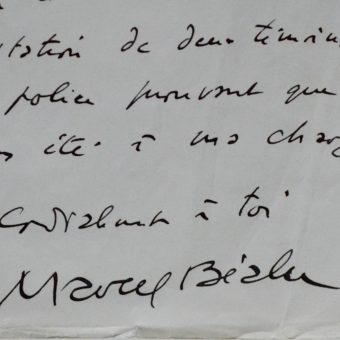 tation de deux témoins
police prouvant que
été à ma charge
Cordialement à toi
Marcel Béalu